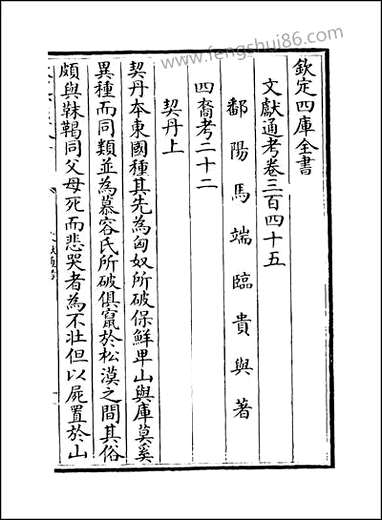 www.fengshui86.com
欽定四庫全書
文獻通考卷三百四十五
鄱陽馬端臨貴與著
四裔考二十二
契丹上
契丹本東國種其先為匈奴所破保鮮卑山與庫莫奚
異種而同類並為慕容氏所破俱竄於松漠之間其俗
頗與靺鞨同父母死而悲哭者為不壯但以屍置於山